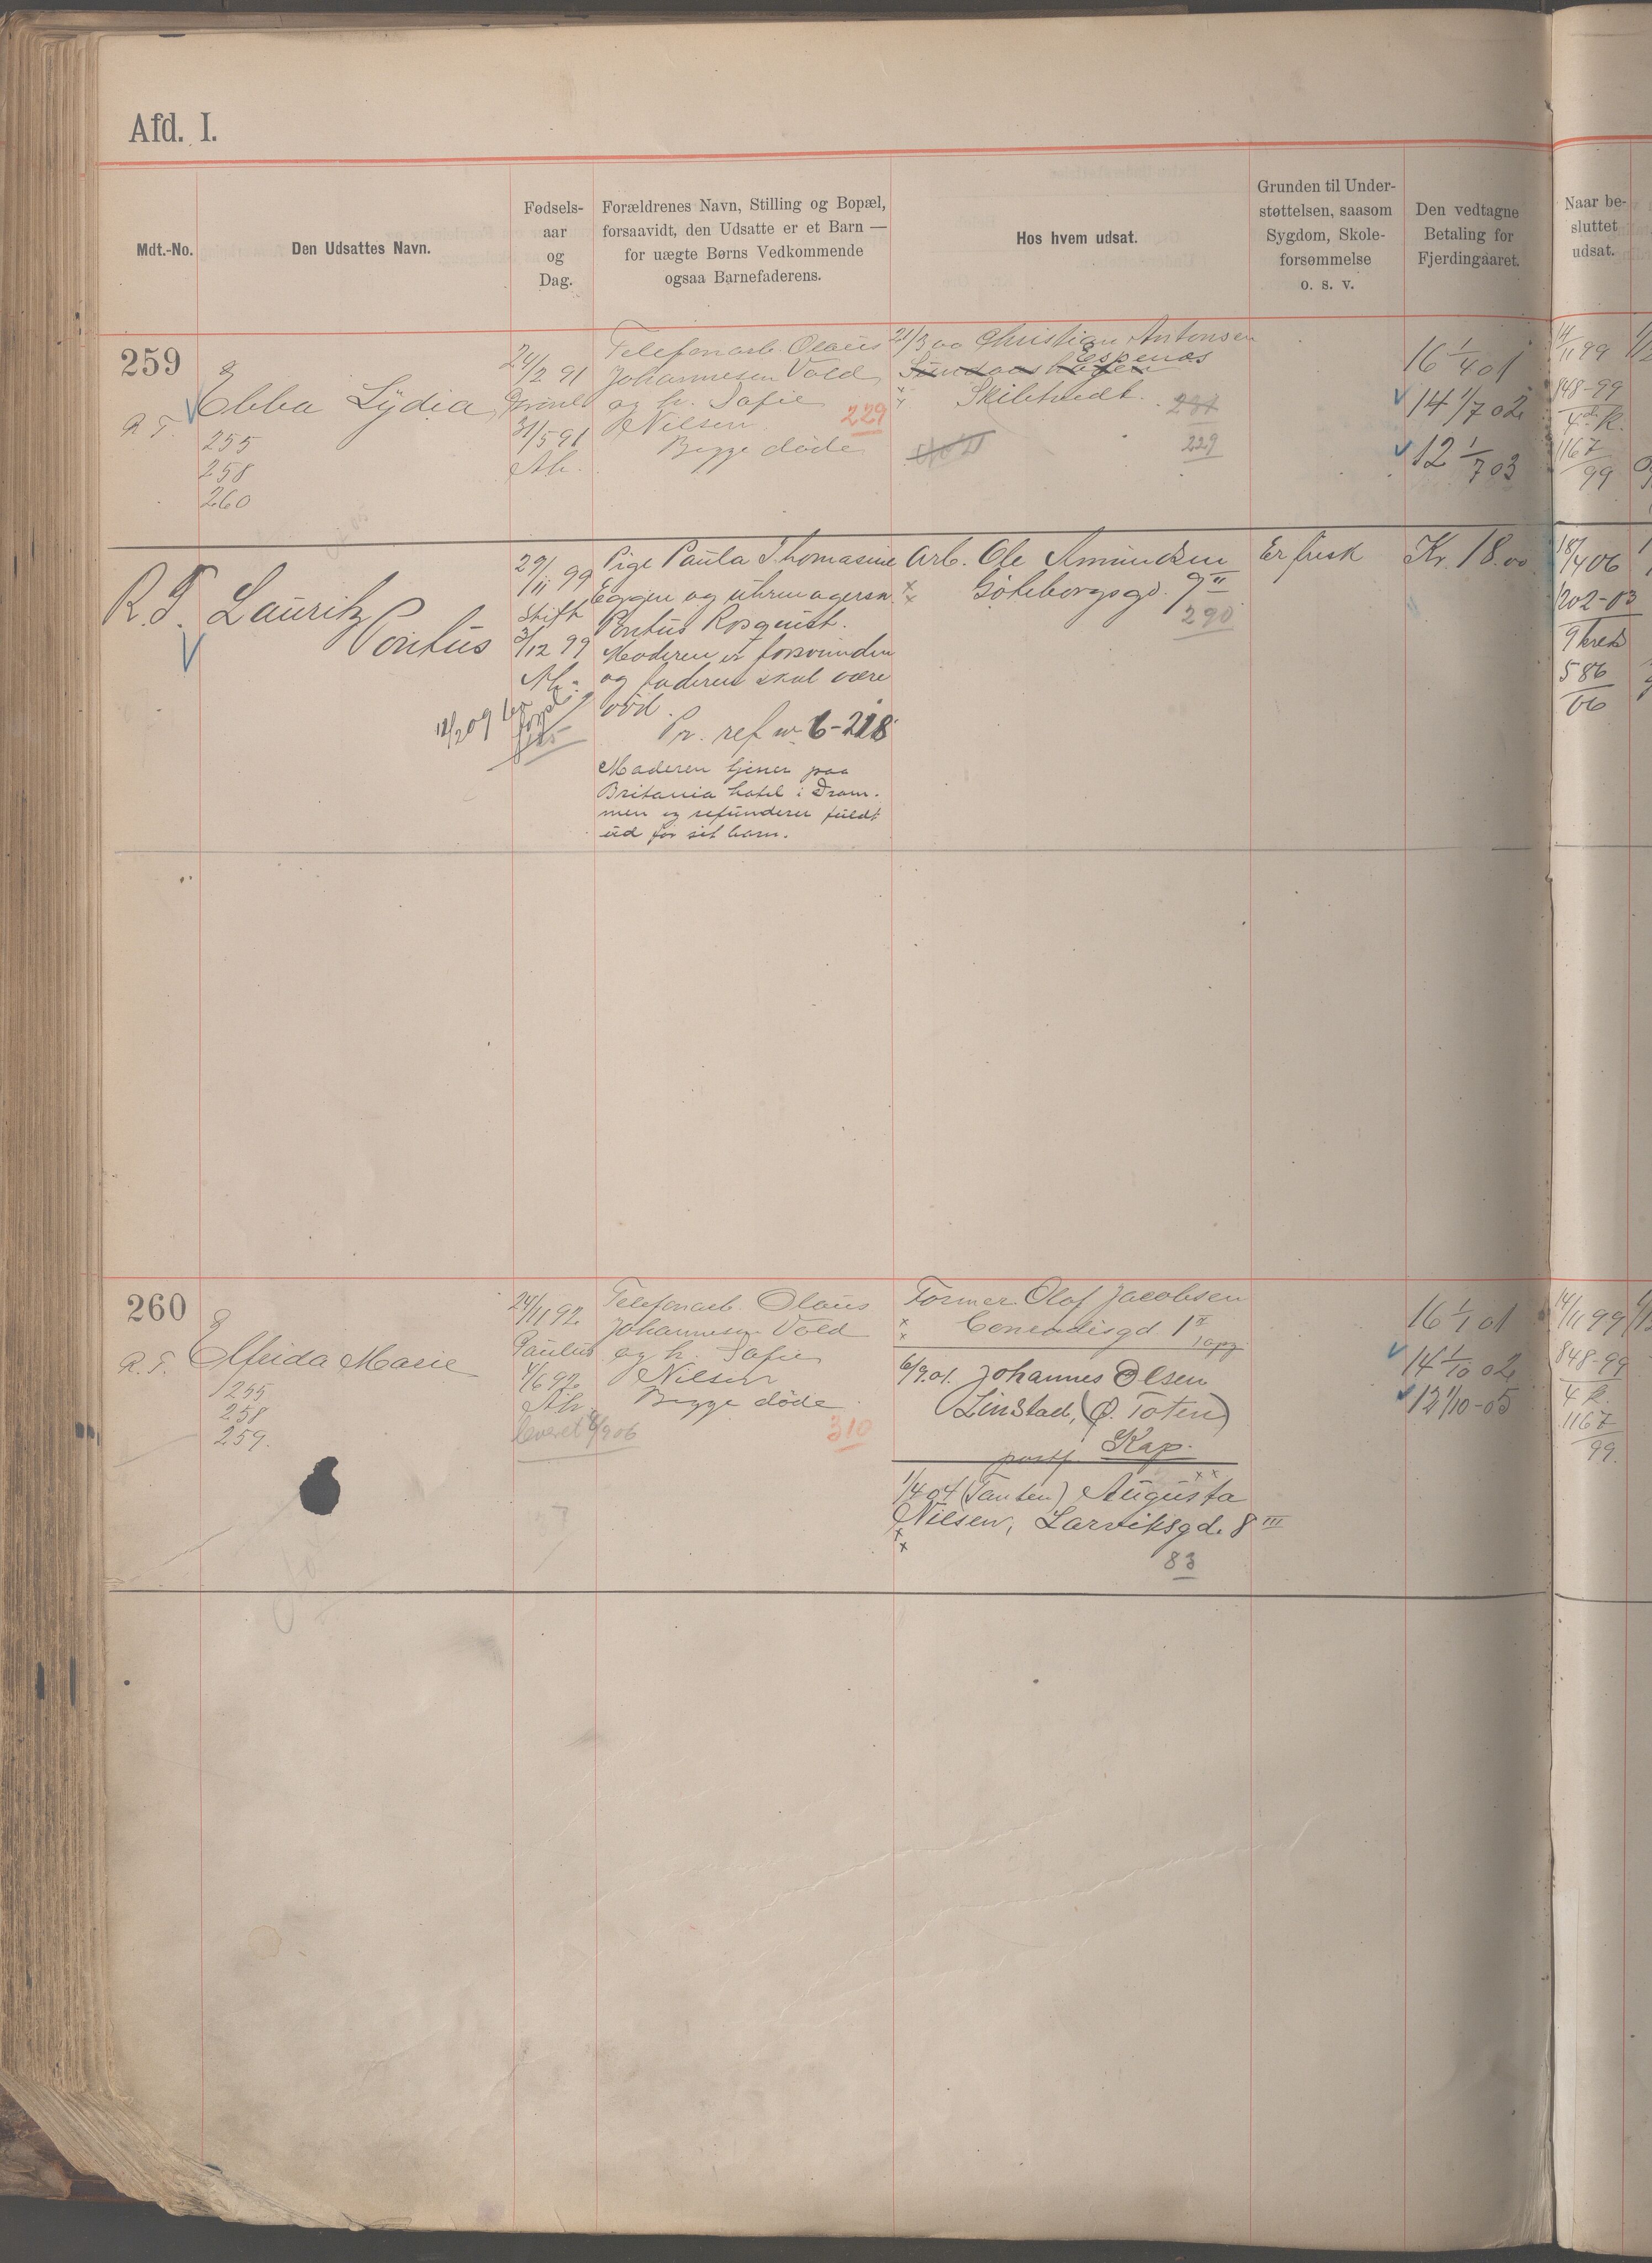 Afd. I.
Mdt.-No.
Den Udsattes Navn.
Fødsels-
aar
og
Dag.
Forældrenes Navn, Stilling og Bopæl,
forsaavidt, den Udsatte er et Barn —
for uægte Børns Vedkommende
ogsaa Barnefaderens.
Hos hvem udsat.
Grunden til Under-
støttelsen, saasom
Sygdom, Skole-
forsømmelse
o. s. v.
Den vedtagne
Betaling for
Fjerdingaaret.
Naar be-
sluttet
udsat.
259
R T.
Ebba Lydia
255
258
260
24/2 91
31/5 91
Ak.
Telefonarb. Olaus
Johannesen Vold
og h. Sofie
Nilsen
229
Begge døde
21/3 00 Christian Antonsen
Espenæs
Skibtvedt.
229
16 1/4 01
14 1/7 02
12 1/7 03
14/11 99
848-99
4de k.
1167
99
R.T.
Lauritz
Pontus
29/11 99
Stift
3/12 99
Ak.
Pige Paula Thomasine
Eggen og uhrmagersv.
Pontus Rosquist.
Moderen er forsvunden
og faderen skal være
död.
Pr. ref. 6-218
Moderen tjener paa
Britania hotel i Dram-
men og refunderer fuldt
ud for sit barn.
Arb. Ole Amundsen
Göteborgsgd. 9 II
290
Er frisk
Kr. 18.00
18/4 06
202-03
9 kreds
586
06
260
R.T.
Elfrida Marie
255
258
259.
24/11 92
Paulus
4/6 92
Ak.
Telefonarb. Olaus
Johannesen Vold
og h. Sofie
Nilsen
Begge døde
310
Former Olaf Jacobsen
1 I
6/9.01. Johannes Olsen
Linstad, (Ø. Toten)
postf. Kap.
1/4 04 (Tanten) Augusta
Nilsen, Larviksgd. 8 III
83
16 1/1 01
14 1/10 02
12 1/10-05
14/11 99
848-99
4 k.
1167
99.